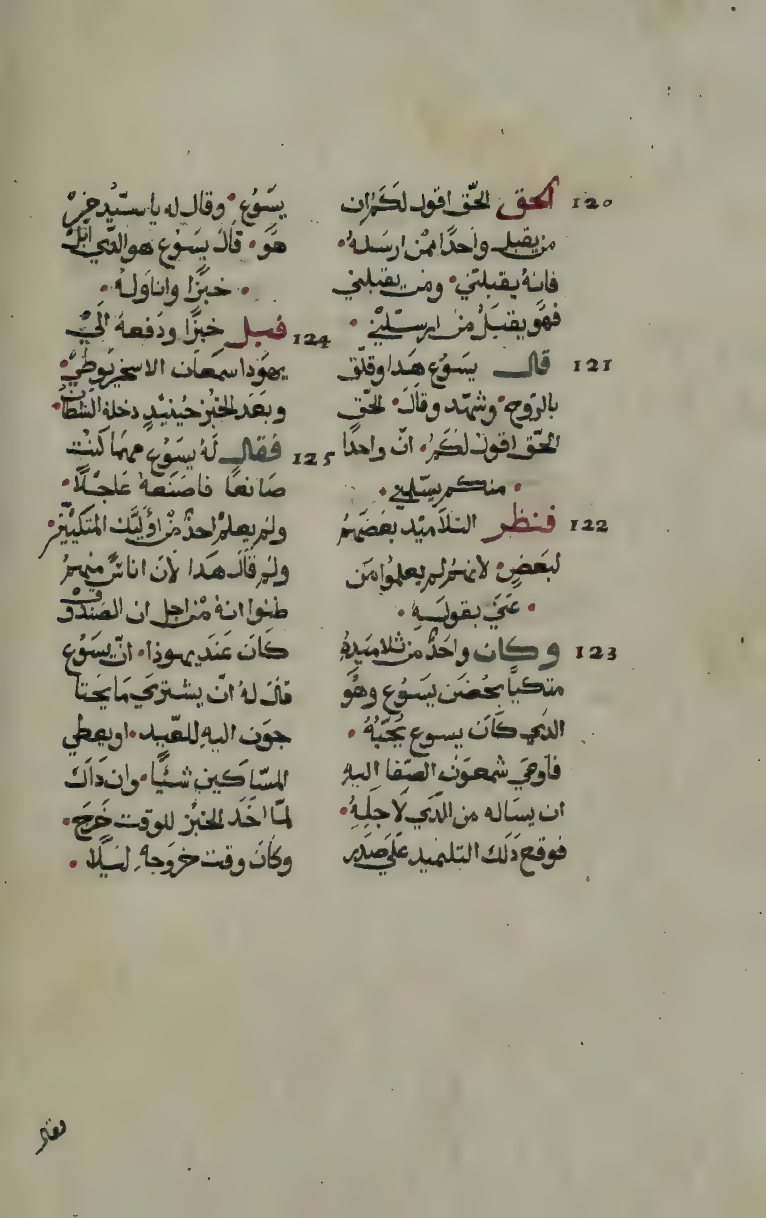 120 الحق الحّق اقول لكم ان
من يقبل واحدًا ممّن ارسله•
فانه يقبلني• ومن يقبلني
فهو يقبل من ارسلني •
121 قال يسوع هدا وقلّق
بالروح• وشهّد وقال• الحّق
الحّق اقول لكم• انّ واحدًا
• منكم يسّلمني•
122 فنظر التلاميد بعضهم
لبعضٍ• لانهم لم يعلموا من
• عني بقوله •
123 وكان واحدٌ من تلاميده
متكيًا بحضن يسوع وهو
الدي كان يسوع يحّبه •
فاوحى شمعون الصفا اليه
ان يساله من الدي لاجله•
فوقع دلك التلميد على صدر
يسوع• وقال له يا سيّد خبرّ
هو• قال يسوع هو الدي ابل
• خبزًا واناوله •
124 فبل خبزًا ودفعه الى
يهودا سمعان الاسخريوطي•
وبعد الخبز حينيدٍ دخله الشطان•
125 فقال له يسوع مهما كنت
صانعًا فاصنعه عاجلًا•
ولم يعلم احدٌ من اوليّك المتكيّين•
ولم قال هدا لان اناسٌ منهم
ظنوا انه من اجل ان الصندوق
كان عند يهودا• انّ يسوع
قال له انّ يشتري ما يحتا
جون اليه للعّيد• او يعطي
المسّاكين شئيًا• وان داك
لمّا اخد الخبز للوقت خرج•
وكان وقت خروجه ليلًا •
فقال